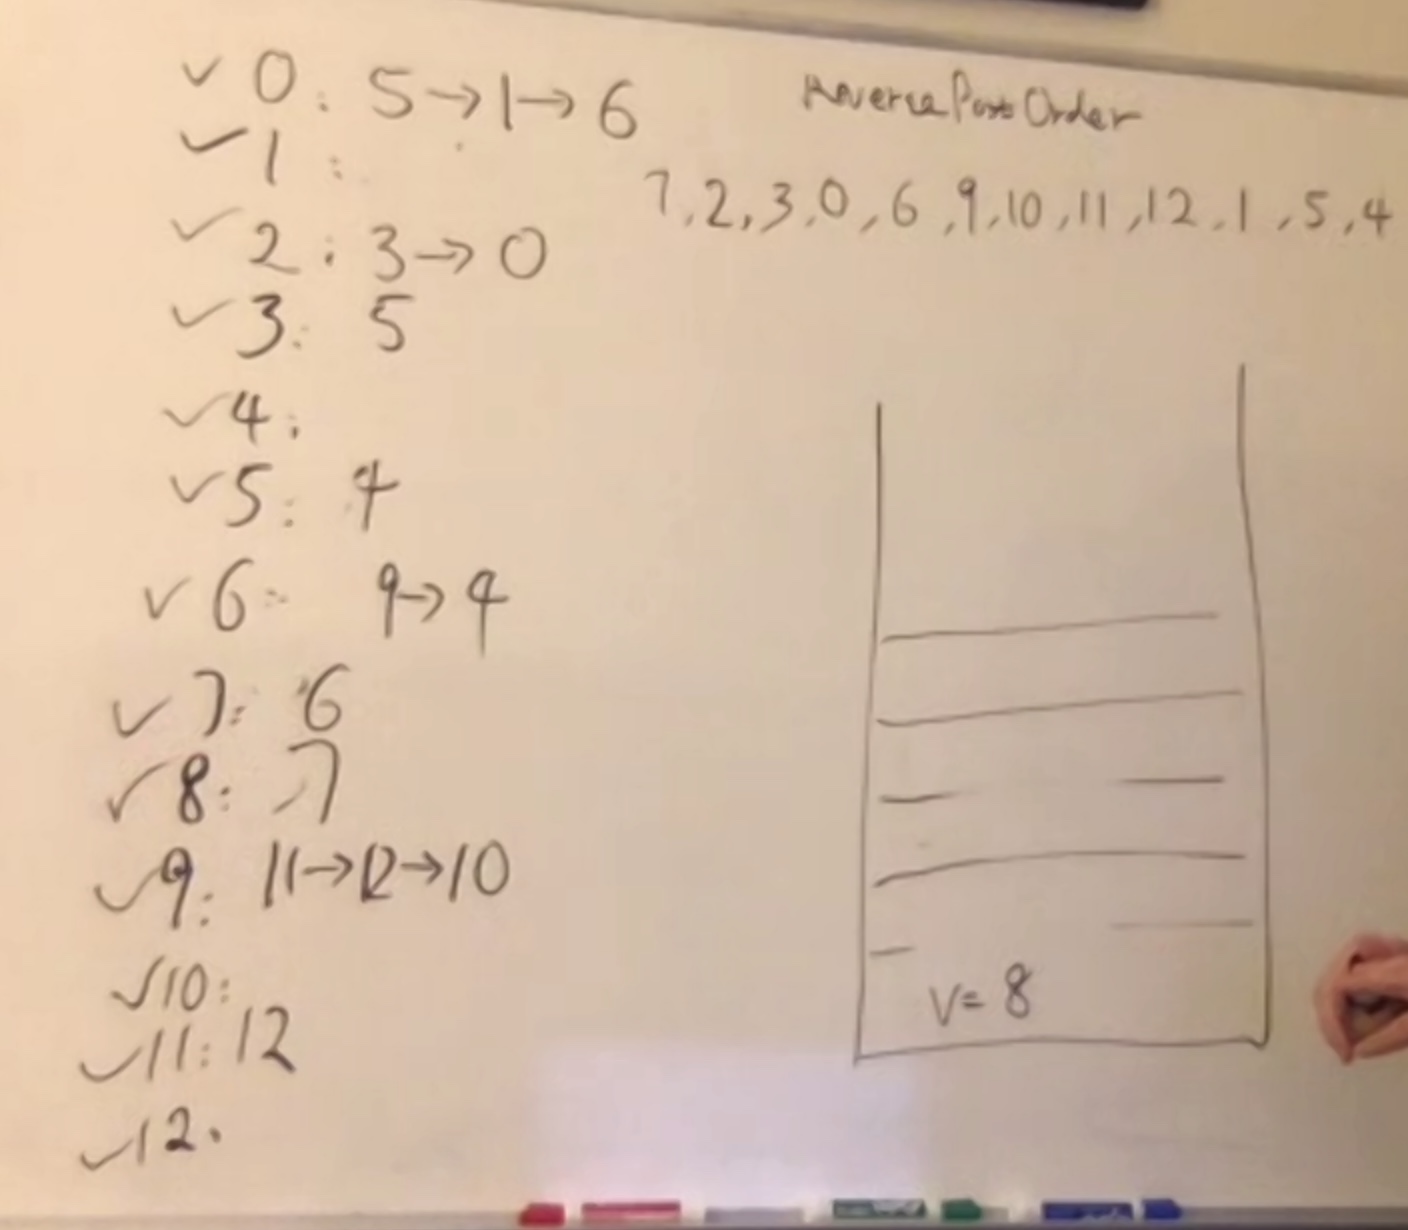 ✓ 0: 5→1→6
✓ 1:
✓ 2: 3→0
✓ 3: 5
✓ 4:
✓ 5: 4
✓ 6: 9→4
✓ 7: 6
✓ 8: 7
✓ 9: 11→12→10
✓ 10:
✓ 11: 12
✓ 12.
ReversePostOrder
7,2,3,0,6,9,10,11,12,1,5,4
V=8